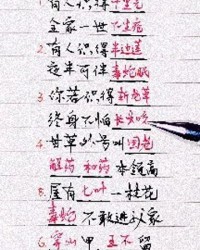 1.有人识得千里光
全家一世不生疮
2.有人识得半边莲
夜半可伴毒蛇眠
3.你若识得新老草
终身不怕长咳嗽
4.甘草外号叫国老
解药和药本领高
5.屋有七叶一枝花
毒蛇不敢进我家
6.穿山甲王不留